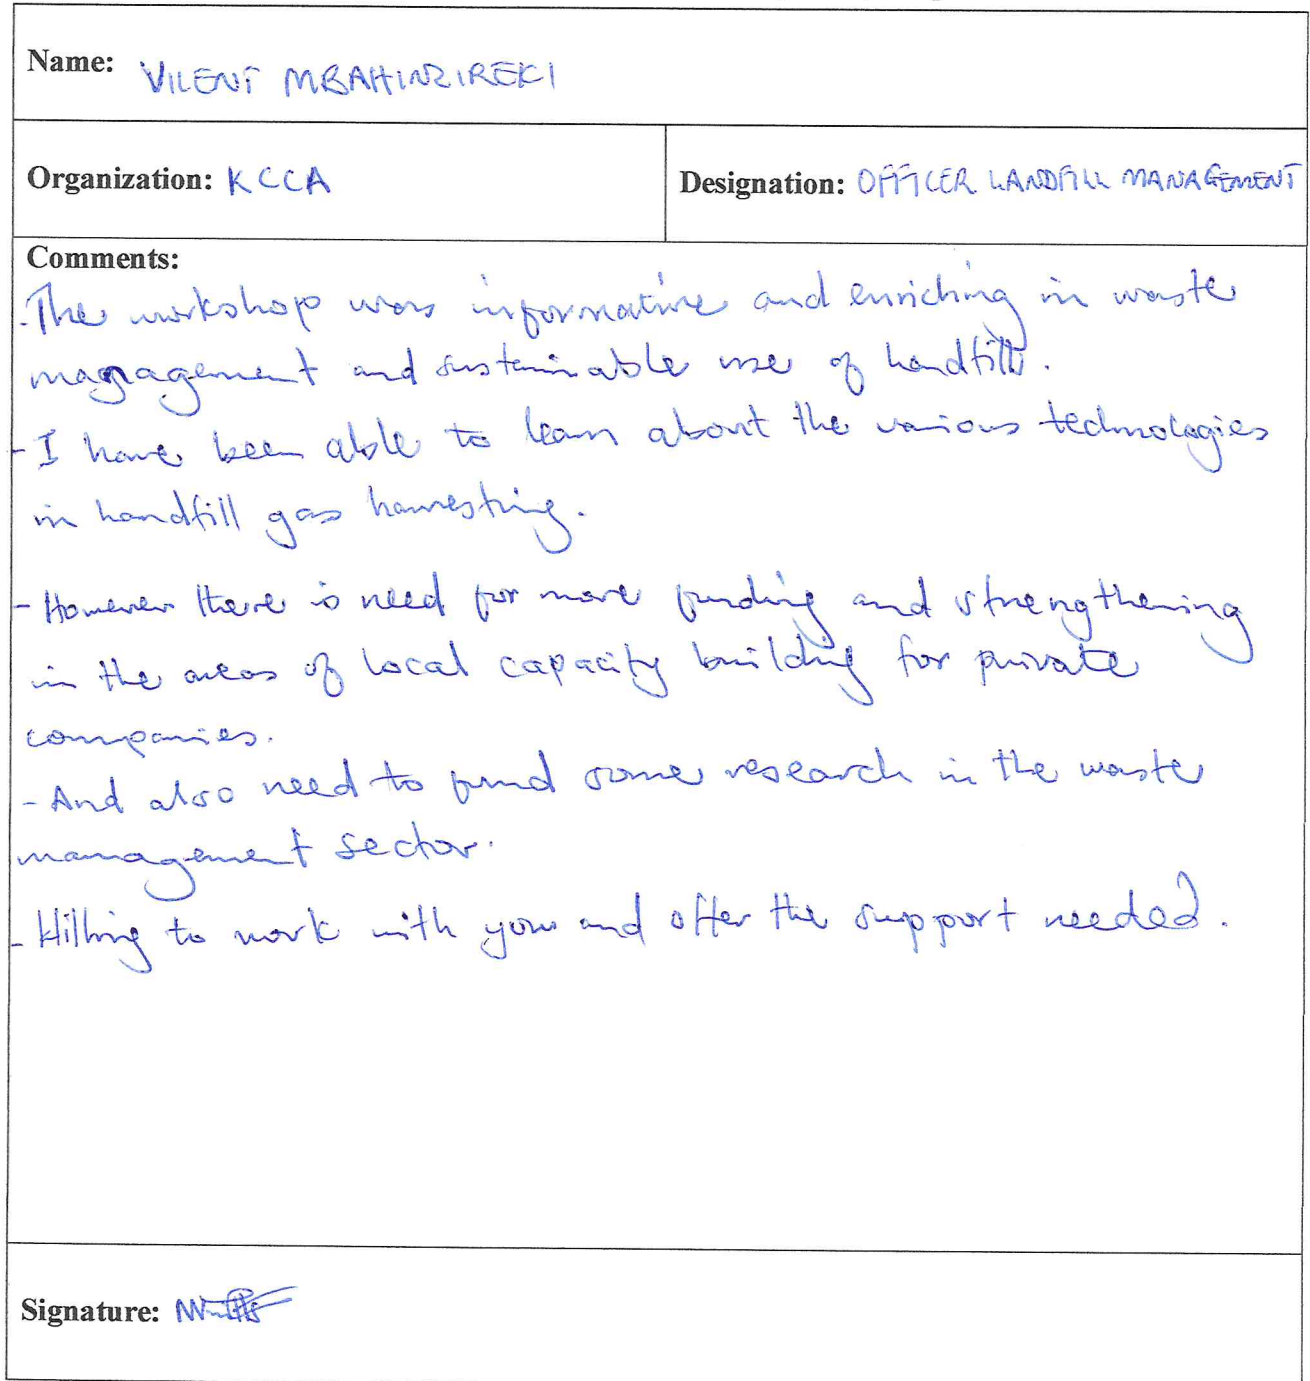 Name: VILENT MBAHINZIREKI
Organization: KCCA
Designation: OFFICER LANDFILL MANAGEMENT
Comments:
-The workshop was informative and enriching in waste
management and sustainable use of landfills.
-I have been able to learn about the various technologies
in landfill gas harvesting.
-However there is need for more funding and strengthening
in the areas of local capacity building for private
companies.
-And also need to fund some research in the waste
management sector.
-Willing to work with you and offer the support needed.
Signature: